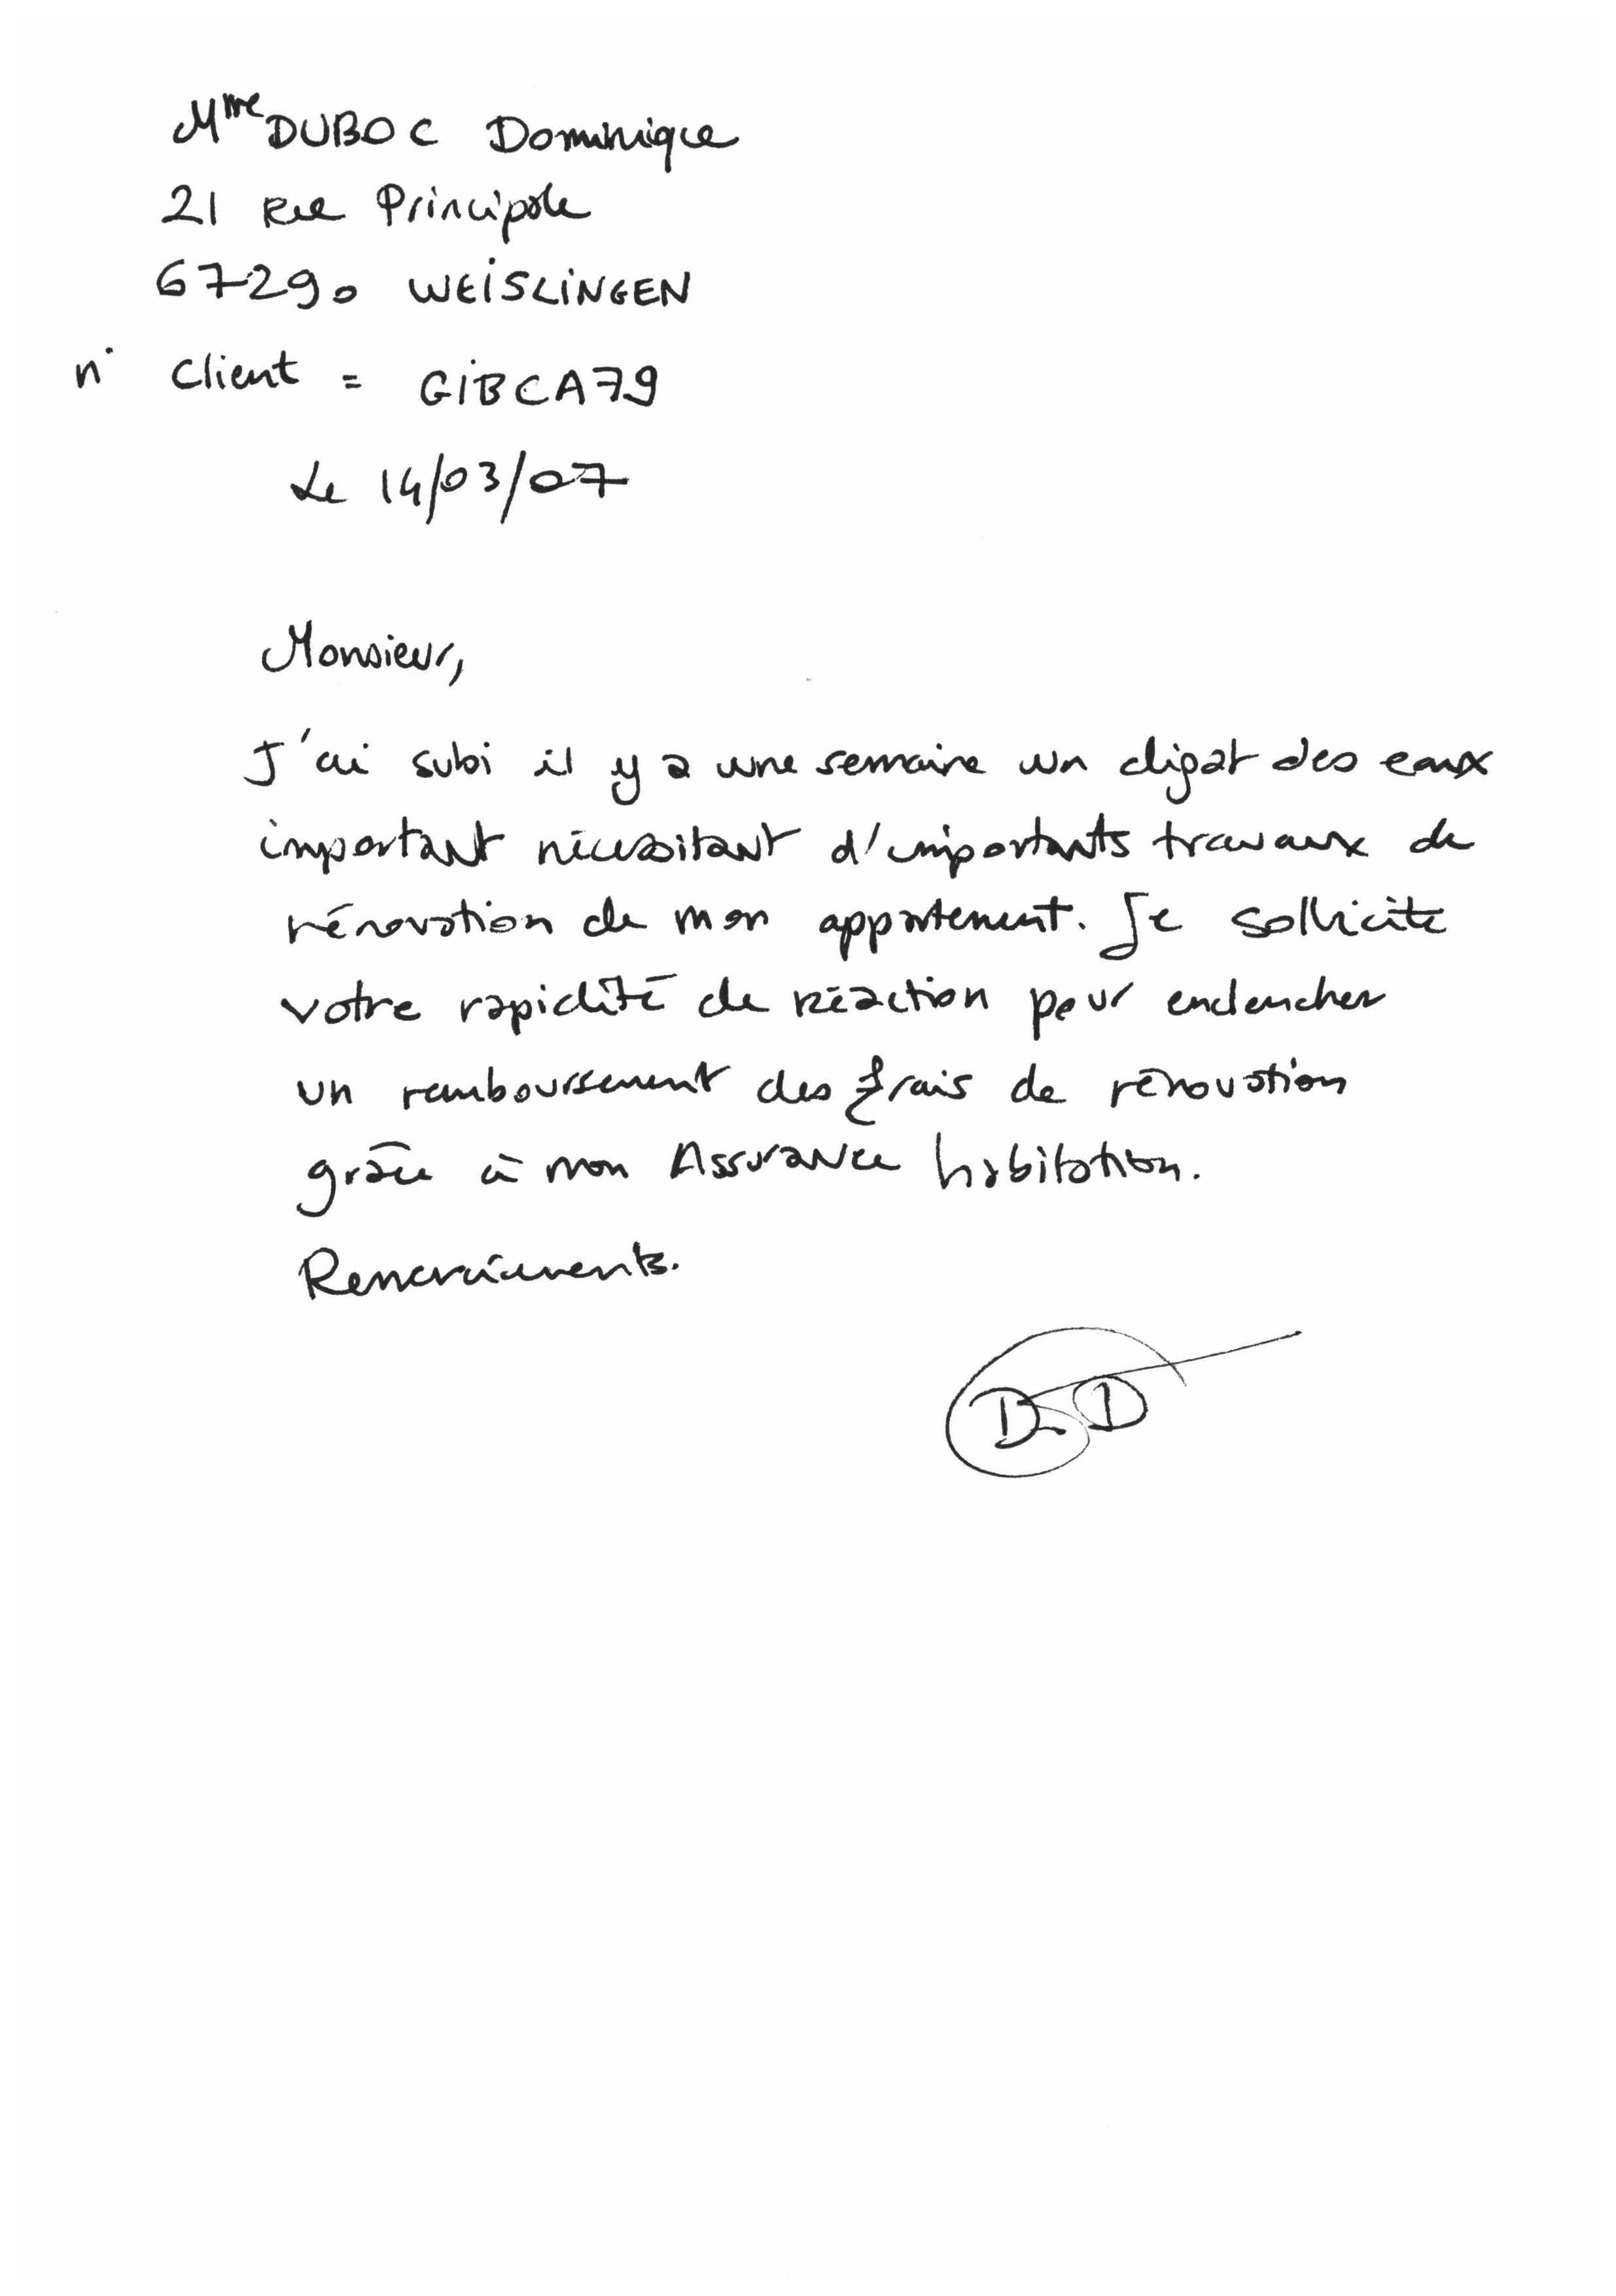 Mme DUBOC Dominique
21 Rue Principale
67290 WEISLINGEN
n° client = GIBCA79
Le 14/03/07
Monsieur,
J'ai subi il y a une semaine un digat des eaux
important nécessitant d'importants travaux de
rénovation de mon appartement. Je sollicite
votre rapidité de réaction pour enclencher
un remboursement des frais de rénovation
grâce à mon Assurance habitation.
Remerciements.
D. D